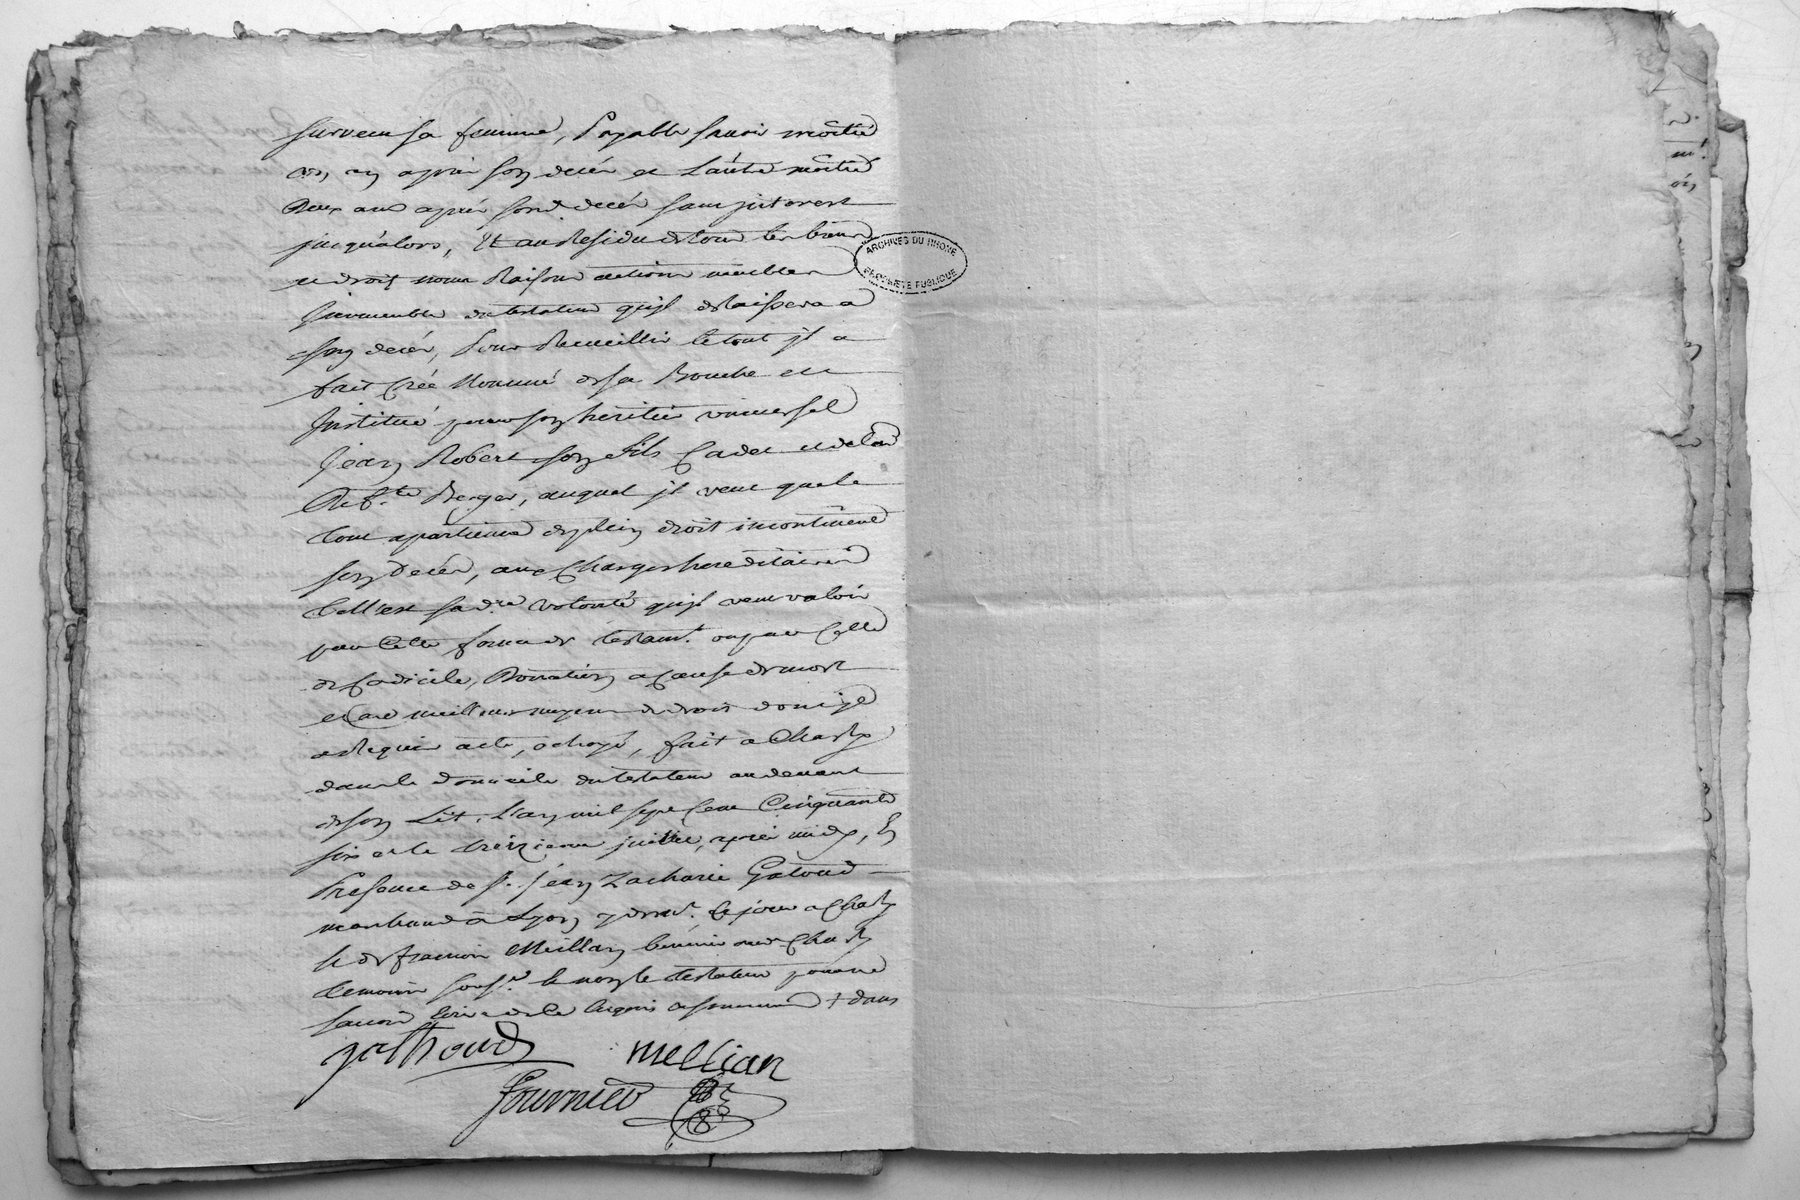 survenu sa femme, Payable savoir moitié
un an après son decés et L'autre moitié
deux ans après sond. decés sans jnterest
jusqu'alors, Et au Residu de tous les biens
et droits noms Raisons actions meubles
Jmmeubles du testateur qu'il delaissera a
son decés, Pour Recueillir le tout jl a
fait Créé Nommé de sa Bouche et
Jnstitué pour son heritier universel
Jean Robert son fils Cadet et de lad.
Berger, auquel jl veut que le
tout apartienne de plein droit incontinent
son Decés, aux Charges hereditaires
Telle est sa d.re volonté qu'il veut valoir
par Cette forme de testam.t ou par Celle
de Codicile, Donation a Cause de mort
et meilleur moyen de droit dont jl
a Requis acte, octroyé, fait a Charly
dans le domicile du testateur au devant
de son Lit, L'an mil sept Cent Cinquante
six et le treizieme juillet, après midy, En
Presence de S.r Jean Zacharie Gatoud
marchand à Lyon de ce jour a Charly
et de francois Meillan dud. Charly
temoins sous.né le non le testateur pour ne
savoir Ecrire de ce Enquis et sommé + dans
galhoud mellian
fournier
ARCHIVES DU RHONE
PROPRIETE PUBLIQUE